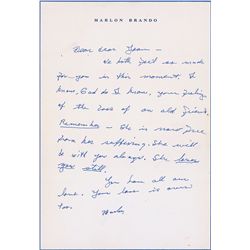 MARLON BRANDO
Dear dear Jean —
We both feel so much
for you in this moment. I
know, God do I know, your feeling
of the loss of an old friend.
Remember — She is now free
from her suffering. She will
be with you always. She loves
you still.
You have all our
love. Your loss is ours
too.
Marlon